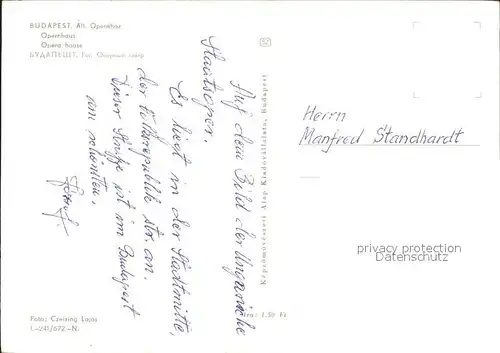 BUDAPEST, Áll. Operaház
Opernhaus
Opera house
БУДАПЕШТ, Гос. Оперный театр
Auf dem Bild der Ungarische
Staatsoper.
Es liegt in der Stadtmitte,
der Volksrepublik str. an.
Dieser Straße ist im Budapest
am schönsten.
Foto: Czeizing Lajos
L-241/672-N.
Képzőművészeti Alap Kiadóvállalata, Budapest
Ára: 1.50 Ft
Herrn
Manfred Standhardt
privacy protection
Datenschutz